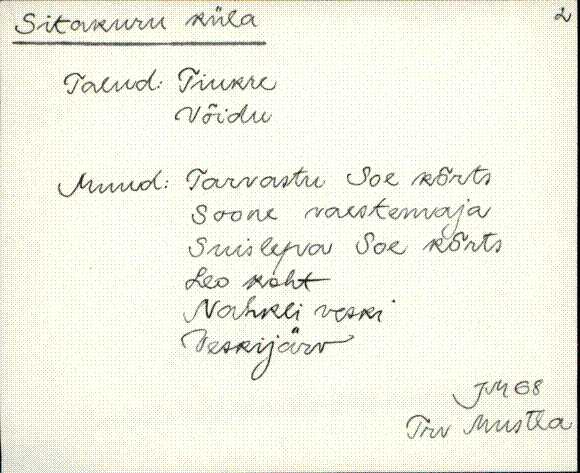 Sitakuru küla 2
Talud: Tiukre
Võidu
Muud: Tarvastu Soe kõrts
Soone vaestemaja
Suislepa Soe kõrts
Leo koht
Nahkli veski
Veskijärv
JM 68
Trv Mustla